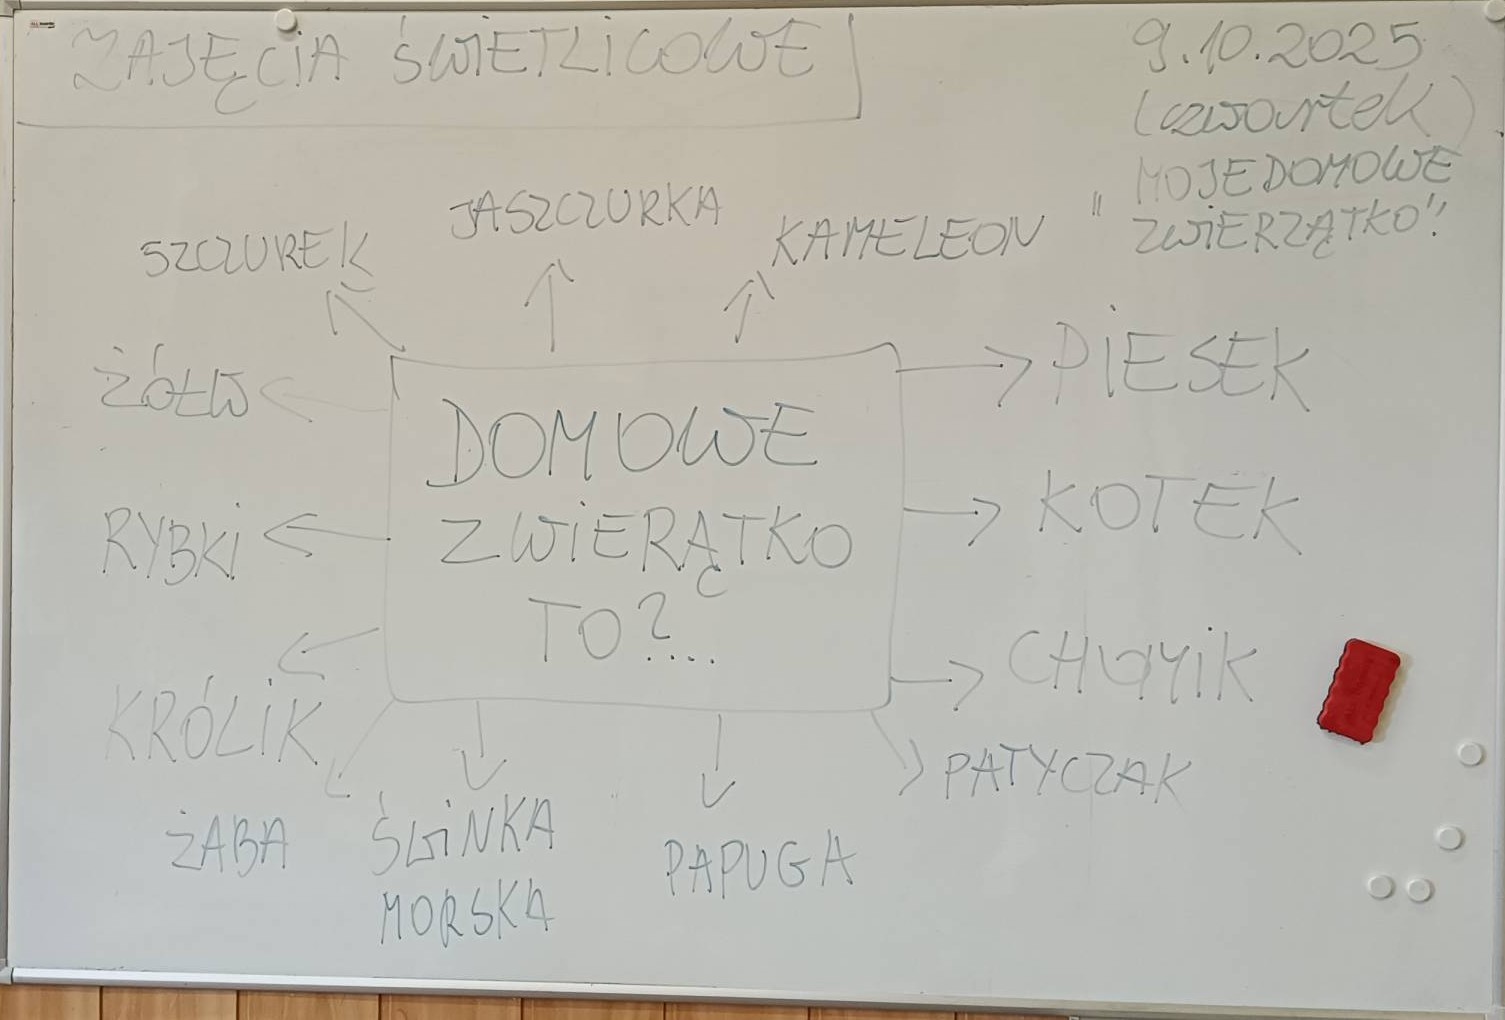 ZAJĘCIA ŚWIETLICOWE
9.10.2025
(czwartek)
MOJE DOMOWE
"ZWIERZĄTKO"!
SZCZUREK
JASZCZURKA
KAMELEON
ŻÓŁW
RYBKI
KRÓLIK
DOMOWE
ZWIERĄTKO
TO?....
PIESEK
KOTEK
CHOMIK
PATYCZAK
ŻABA
ŚWINKA
MORSKA
PAPUGA